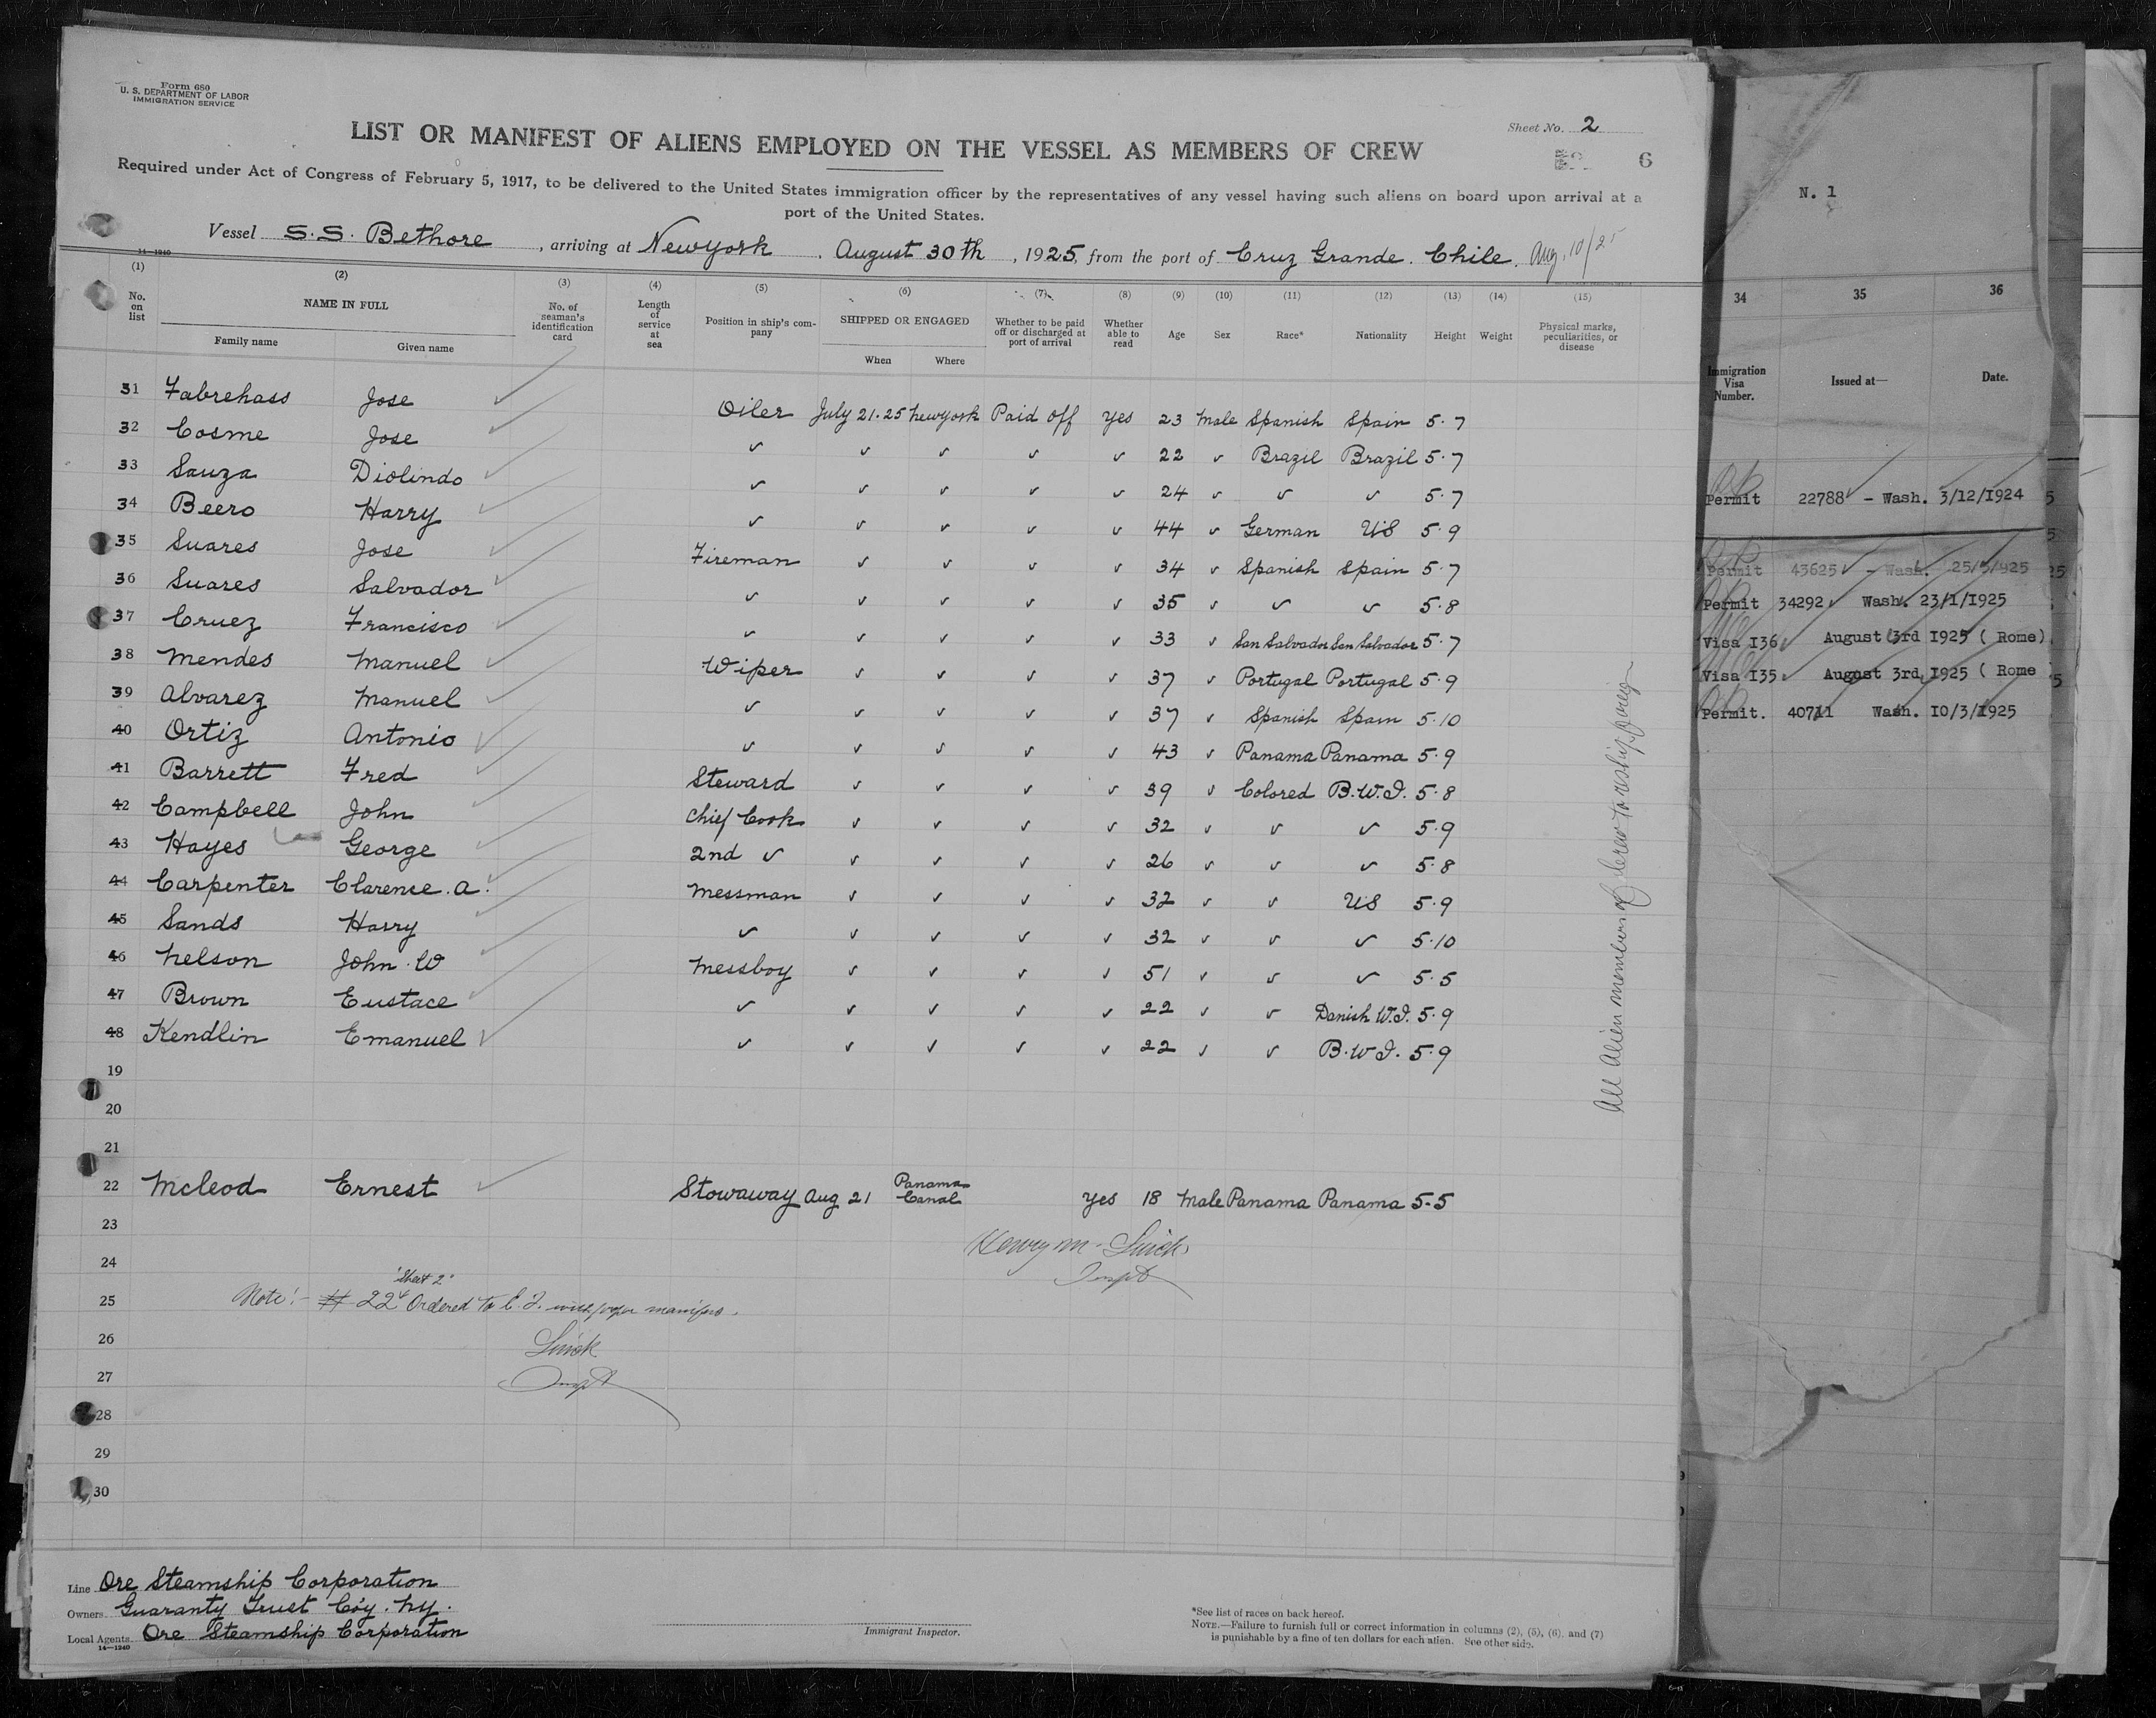 Form 680
U. S. DEPARTMENT OF LABOR
IMMIGRATION SERVICE
Sheet No. 2
LIST OR MANIFEST OF ALIENS EMPLOYED ON THE VESSEL AS MEMBERS OF CREW
6
Required under Act of Congress of February 5, 1917, to be delivered to the United States immigration officer by the representatives of any vessel having such aliens on board upon arrival at a
port of the United States.
Vessel S.S. Bethore, arriving at Newyork, August 30th, 1925, from the port of Cruz Grande. Chile. Aug. 10/25
14—1240
(1) (2) (3) (4) (5) (6) (7) (8) (9) (10) (11) (12) (13) (14) (15)
No. on list NAME IN FULL No. of seaman's identification card Length of service at sea Position in ship's company SHIPPED OR ENGAGED Whether to be paid off or discharged at port of arrival Whether able to read Age Sex Race* Nationality Height Weight Physical marks, peculiarities, or disease
Family name Given name When Where
31 Fabrehass Jose Oiler July 21.25 Newyork Paid off yes 23 Male Spanish Spain 5.7
32 Cosme Jose ✓ ✓ ✓ ✓ ✓ 22 ✓ Brazil Brazil 5.7
33 Sauza Diolindo ✓ ✓ ✓ ✓ ✓ 24 ✓ ✓ ✓ 5.7
34 Beero Harry ✓ ✓ ✓ ✓ ✓ 44 ✓ German US 5.9
35 Suares Jose Fireman ✓ ✓ ✓ ✓ 34 ✓ Spanish Spain 5.7
36 Suares Salvador ✓ ✓ ✓ ✓ ✓ 35 ✓ ✓ ✓ 5.8
37 Cruez Francisco ✓ ✓ ✓ ✓ ✓ 33 ✓ San Salvador San Salvador 5.7
38 Mendes Manuel Wiper ✓ ✓ ✓ ✓ 37 ✓ Portugal Portugal 5.9
39 Alvarez Manuel ✓ ✓ ✓ ✓ ✓ 37 ✓ Spanish Spain 5.10
40 Ortiz Antonio ✓ ✓ ✓ ✓ ✓ 43 ✓ Panama Panama 5.9
41 Barrett Fred Steward ✓ ✓ ✓ ✓ 39 ✓ Colored B.W.I. 5.8
42 Campbell John Chief Cook ✓ ✓ ✓ ✓ 32 ✓ ✓ ✓ 5.9
43 Hayes George 2nd ✓ ✓ ✓ ✓ ✓ 26 ✓ ✓ ✓ 5.8
44 Carpenter Clarence. A. Messman ✓ ✓ ✓ ✓ 32 ✓ ✓ US 5.9
45 Sands Harry ✓ ✓ ✓ ✓ ✓ 32 ✓ ✓ ✓ 5.10
46 Nelson John. W Messboy ✓ ✓ ✓ ✓ 51 ✓ ✓ ✓ 5.5
47 Brown Eustace ✓ ✓ ✓ ✓ ✓ 22 ✓ ✓ Danish W.I. 5.9
48 Kendlin Emanuel ✓ ✓ ✓ ✓ ✓ 22 ✓ ✓ B.W.I. 5.9
19
20
21
22 Mcleod Ernest Stowaway Aug 21 Panama Canal yes 18 Male Panama Panama 5.5
23
Henry M.
Inspt
24
"Sheet 2"
25 Note:- # 22 Ordered to E. I.
26
27 Inspt
28
29
30
All Alien members of Crew to reship foreign
Line Ore Steamship Corporation
Owners Guaranty Trust Coy. NY.
Local Agents Ore Steamship Corporation
14—1240
Immigrant Inspector.
*See list of races on back hereof.
NOTE.—Failure to furnish full or correct information in columns (2), (5), (6), and (7)
is punishable by a fine of ten dollars for each alien. See other side.
N. 1
34 35 36
Immigration Visa Number. Issued at— Date.
Permit 22788 - Wash. 3/12/1924
Permit 43625 - Wash. 25/5/1925
Permit 34292 Wash. 23/1/1925
Visa I36 August 3rd 1925 ( Rome)
Visa I35 August 3rd 1925 ( Rome
Permit. 40711 Wash. 10/3/1925